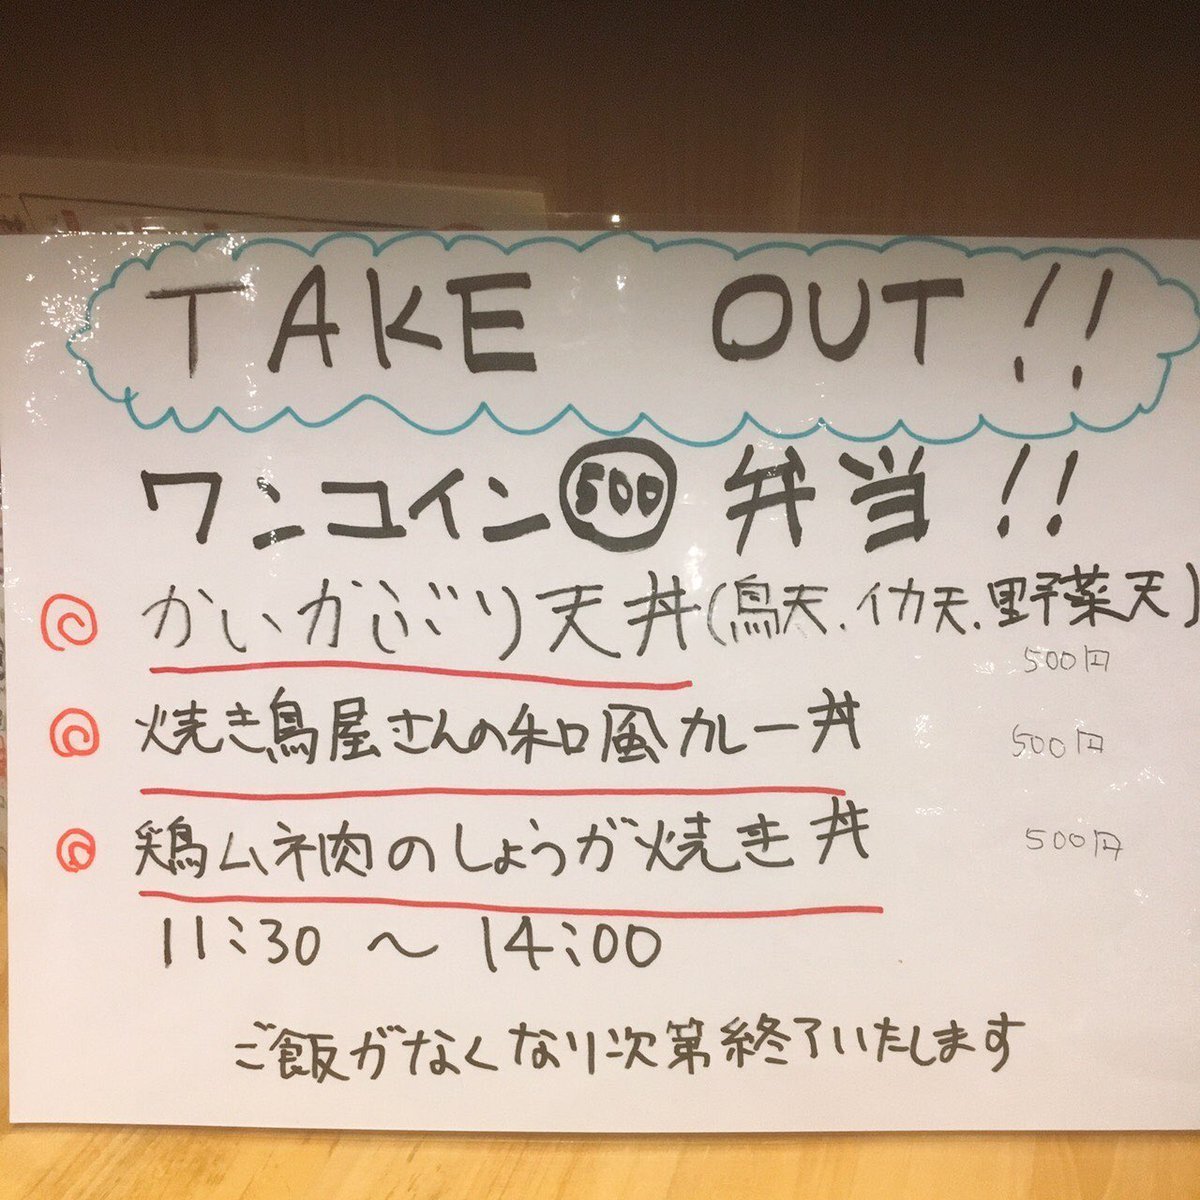 TAKE OUT!!
ワンコイン500弁当!!
かいかぶり天丼(鳥天.イカ天.野菜天)
500円
焼き鳥屋さんの和風カレー丼 500円
鶏ムネ肉のしょうが焼き丼 500円
11:30 〜 14:00
ご飯がなくなり次第終了いたします